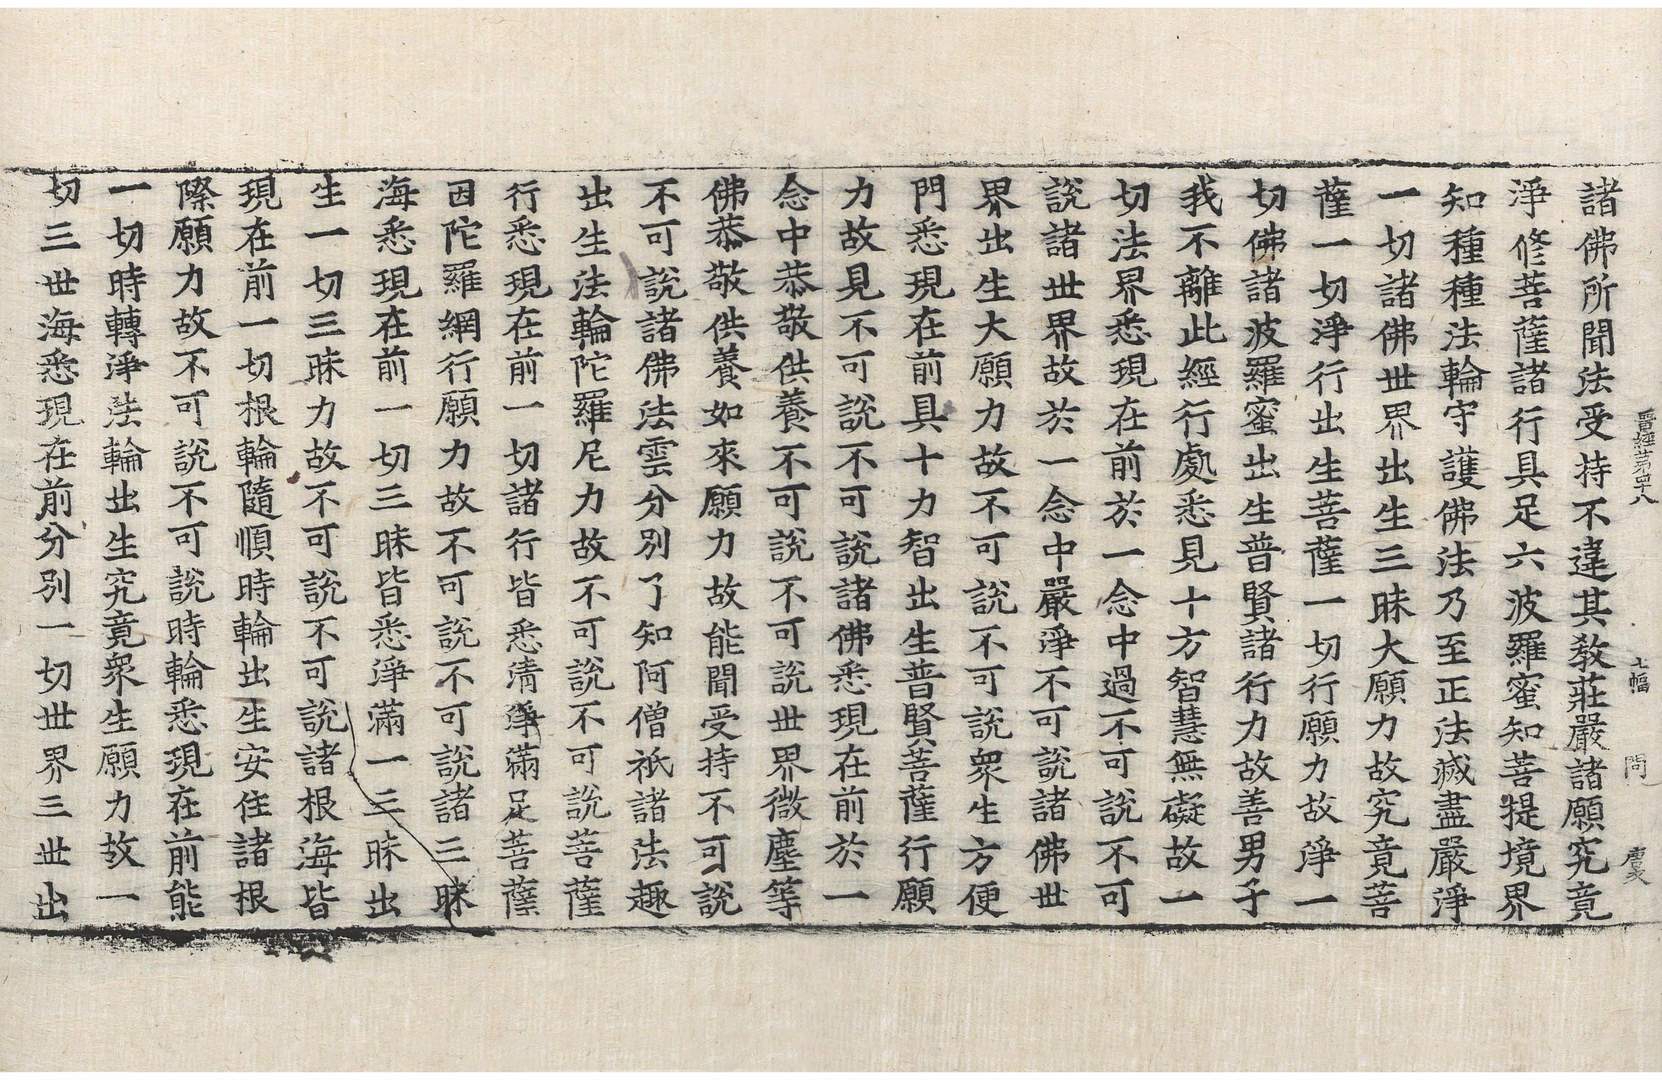 晋經第四十八 七幅 問 唐文
諸佛所聞法受持不違其教莊嚴諸願究竟
淨修菩薩諸行具足六波羅蜜知菩提境界
知種種法輪守護佛法乃至正法滅盡嚴淨
一切諸佛世界出生三昧大願力故究竟菩
薩一切淨行出生菩薩一切行願力故淨一
切佛諸波羅蜜出生普賢諸行力故善男子
我不離此經行處悉見十方智慧無礙故一
切法界悉現在前於一念中過不可說不可
說諸世界故於一念中嚴淨不可說諸佛世
界出生大願力故不可說不可說衆生方便
門悉現在前具十力智出生普賢菩薩行願
力故見不可說不可說諸佛悉現在前於一
念中恭敬供養不可說不可說世界微塵等
佛恭敬供養如來願力故能聞受持不可說
不可說諸佛法雲分別了知阿僧祇諸法趣
出生法輪陀羅尼力故不可說不可說菩薩
行悉現在前一切諸行皆悉清淨滿足菩薩
因陀羅網行願力故不可說不可說諸三昧
海悉現在前一切三昧皆悉淨滿一三昧出
生一切三昧力故不可說不可說諸根海皆
現在前一切根輪隨順時輪出生安住諸根
際願力故不可說不可說時輪悉現在前能
一切時轉淨法輪出生究竟衆生願力故一
切三世海悉現在前分別一切世界三世出